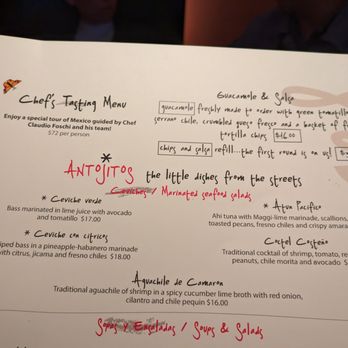 Chef's Tasting Menu
Enjoy a special tour of Mexico guided by Chef
Claudio Foschi and his team!
$72 per person
Guacamole & Salsa
guacamole freshly made to order with green tomatillo
serrano chile, crumbled queso fresco and a basket of
tortilla chips $16.00
chips and salsa refill...the first round is on us!
* ANTOJITOS the little dishes from the streets
Ceviches / Marinated seafood salads
* Ceviche verde
Bass marinated in lime juice with avocado
and tomatillo $17.00
* Ceviche con citricos
iped bass in a pineapple-habanero marinade
with citrus, jicama and fresno chiles $18.00
* Atun Pacifico
Ahi tuna with Maggi-lime marinade, scallions,
toasted pecans, fresno chiles and crispy amara
Coctel Costeño
Traditional cocktail of shrimp, tomato, re
peanuts, chile morita and avocado $
Aguachile de Camaron
Traditional aguachile of shrimp in a spicy cucumber lime broth with red onion,
cilantro and chile pequin $16.00
Sopas y Ensaladas / Soups & Salads